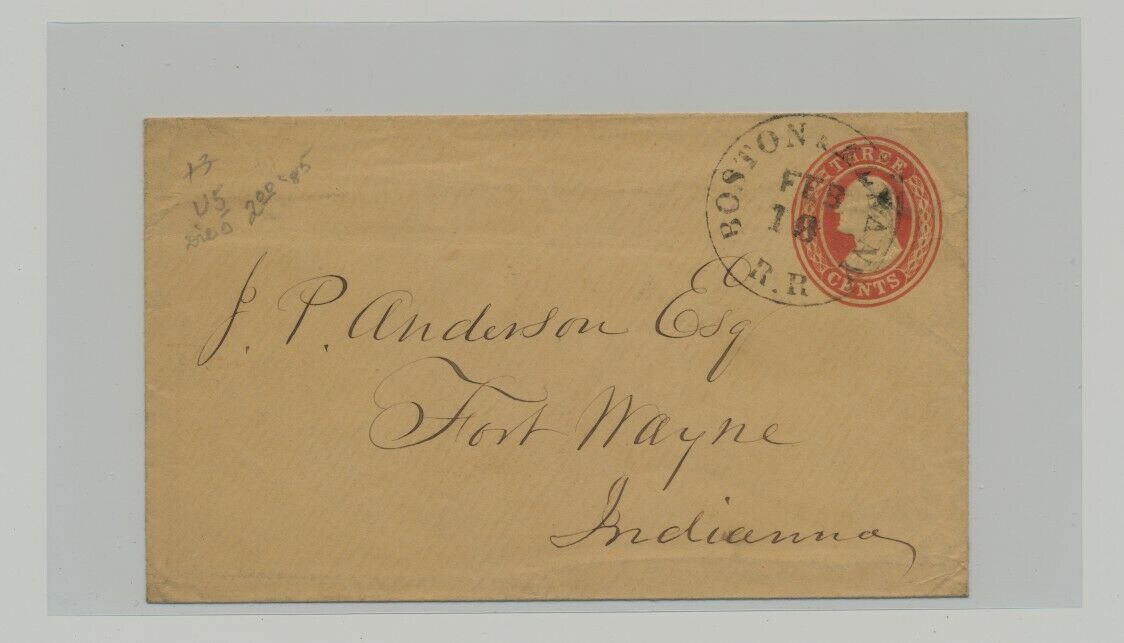 +3
U5
Die 5 200 '85
BOSTON & ALBANY
FEB
18
R.R
THREE
CENTS
J. P. Anderson Esq
Fort Wayne
Indianna